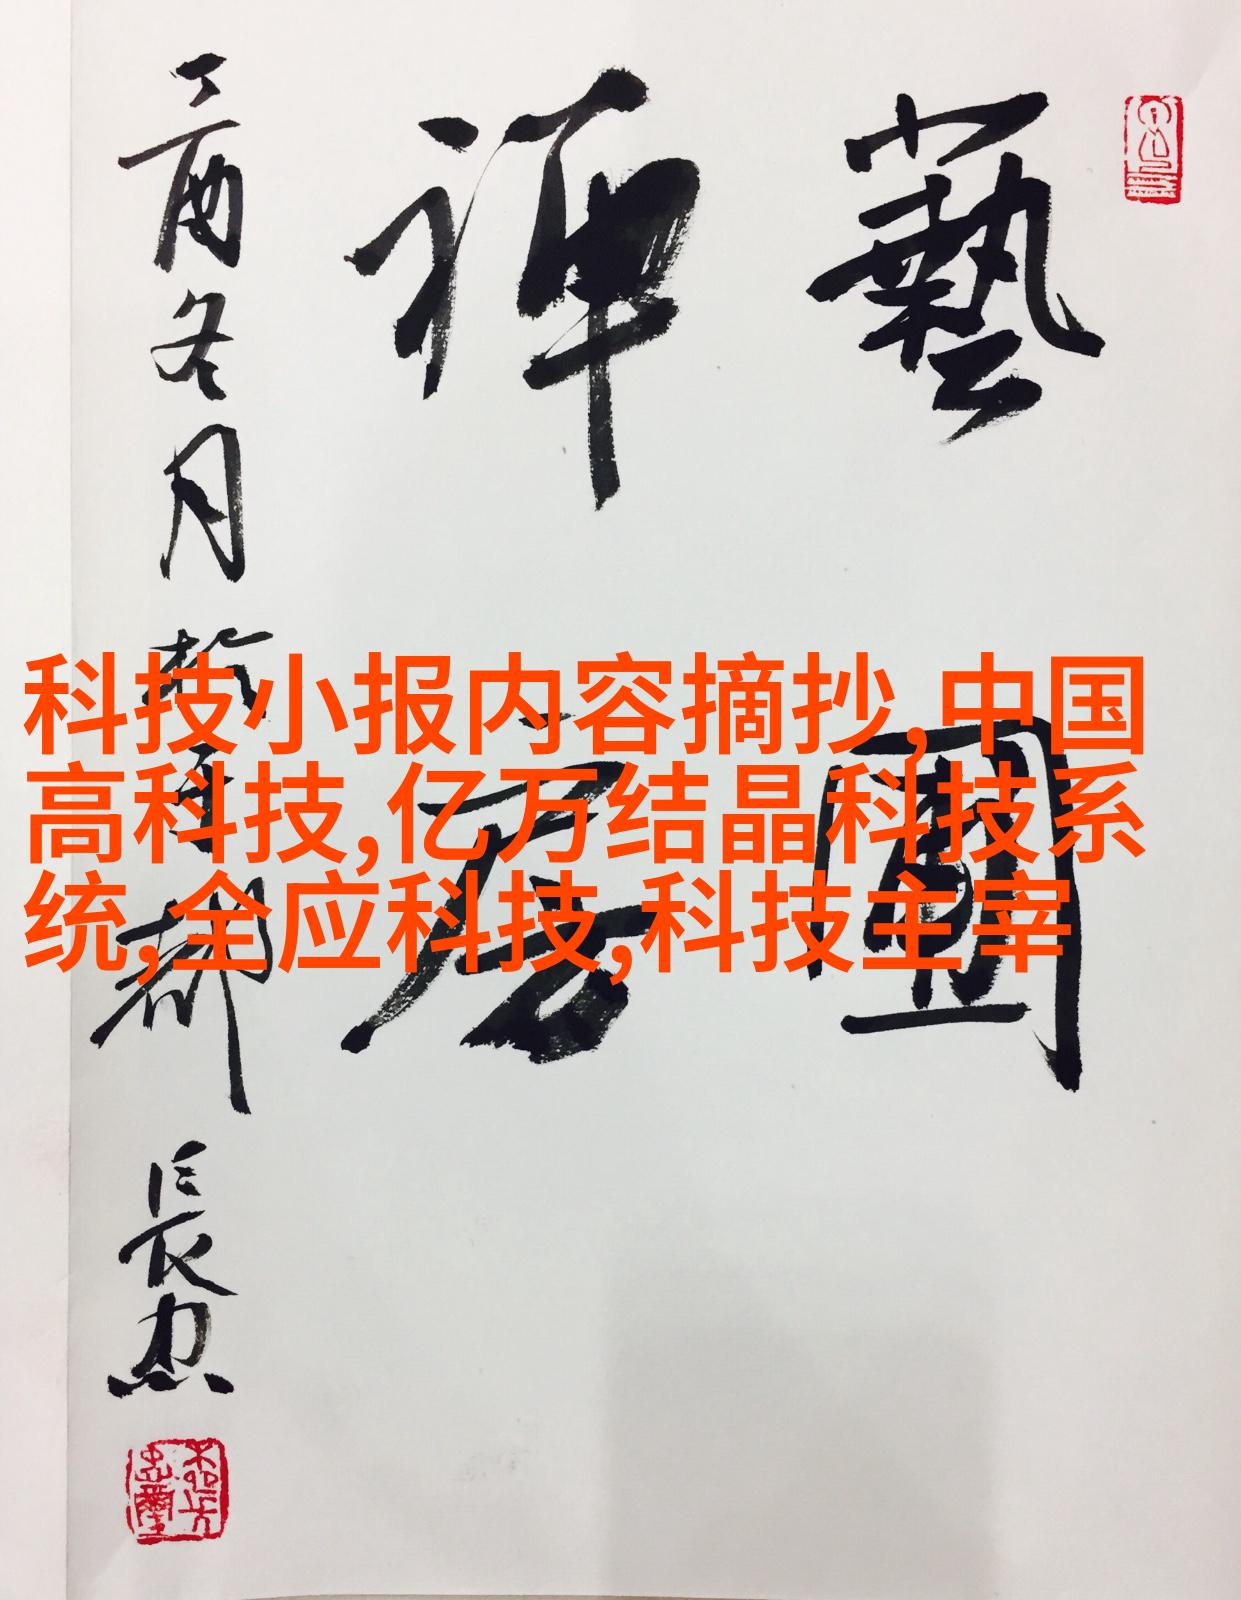 藝圃
禅居
丁酉冬月
長忠
科技小报内容摘抄,中国
高科技,亿万结晶科技系
统,全应科技,科技主宰